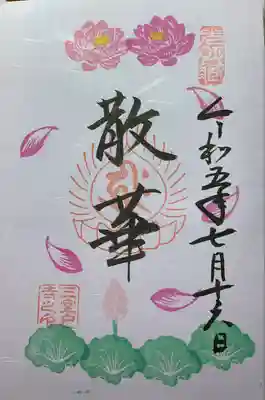 令和五年七月十六日
散華